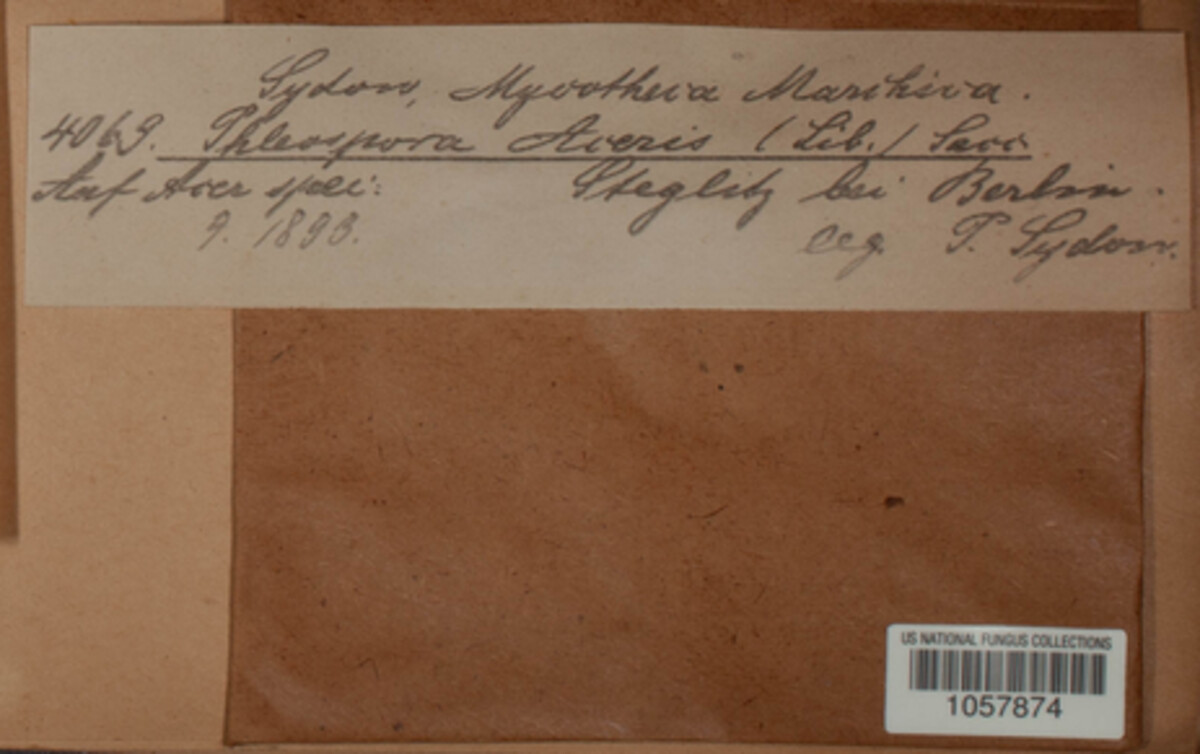 Sydow, Mycotheca Marchica.
4069. Phleospora Aceris (Lib.) Sacc.
Auf Acer spec: Steglitz bei Berlin.
9. 1893. leg. P. Sydow.
US NATIONAL FUNGUS COLLECTIONS
1057874